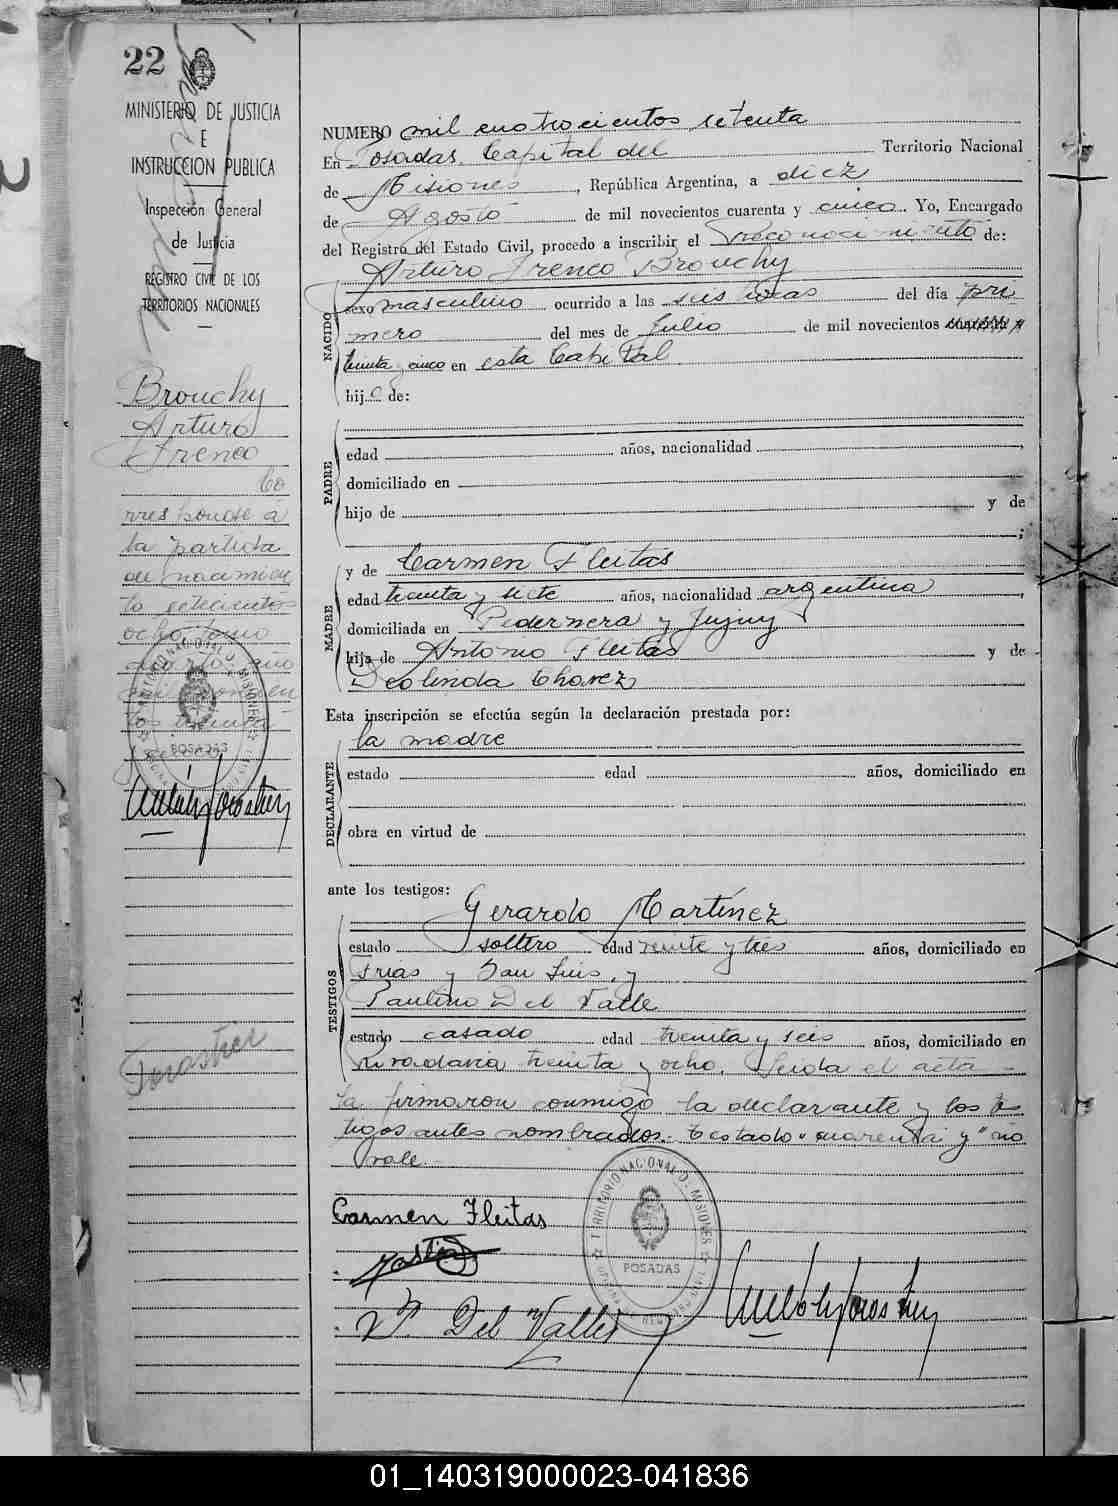 22
MINISTERIO DE JUSTICIA
E
INSTRUCCION PUBLICA
Inspección General
de Justicia
REGISTRO CIVIL DE LOS
TERRITORIOS NACIONALES
Brouchy
Arturo
Ireneo
Co
rresponde a
la partida
de nacimien
to setecientos
ocho, tomo
cuarto año
mil novecien
tos treinta
TERRITORIO NACIONAL DE MISIONES
POSADAS
NUMERO mil cuatrocientos setenta
En Posadas. Capital del Territorio Nacional
de Misiones, República Argentina, a diez
de Agosto de mil novecientos cuarenta y cinco. Yo, Encargado
del Registro del Estado Civil, procedo a inscribir el Reconocimiento de:
Arturo Ireneo Brouchy
NACIDO
sexo masculino ocurrido a las seis horas del día pri
mero del mes de Julio de mil novecientos cuarenta y
treinta y cinco en esta Capital
hijo de:
PADRE
edad años, nacionalidad ,
domiciliado en
hijo de y de
;
MADRE
y de Carmen Fleitas
edad treinta y siete años, nacionalidad argentina ,
domiciliada en Pedernera y Jujuy
hija de Antonio Fleitas y de
Deolinda Chavez
Esta inscripción se efectúa según la declaración prestada por:
DECLARANTE
la madre
estado edad años, domiciliado en
obra en virtud de
ante los testigos:
TESTIGOS
Gerardo Martínez
estado soltero edad veinte y tres años, domiciliado en
Frias y San Luis, y
Paulino Del Valle
estado casado edad treinta y seis años, domiciliado en
Rivadavia treinta y ocho. Leida el acta
la firmaron conmigo la declarante y los tes
tigos antes nombrados. Testado "cuarenta y" no
vale.
Carmen Fleitas
P. Del Valle
TERRITORIO NACIONAL DE MISIONES
POSADAS
01_140319000023-041836